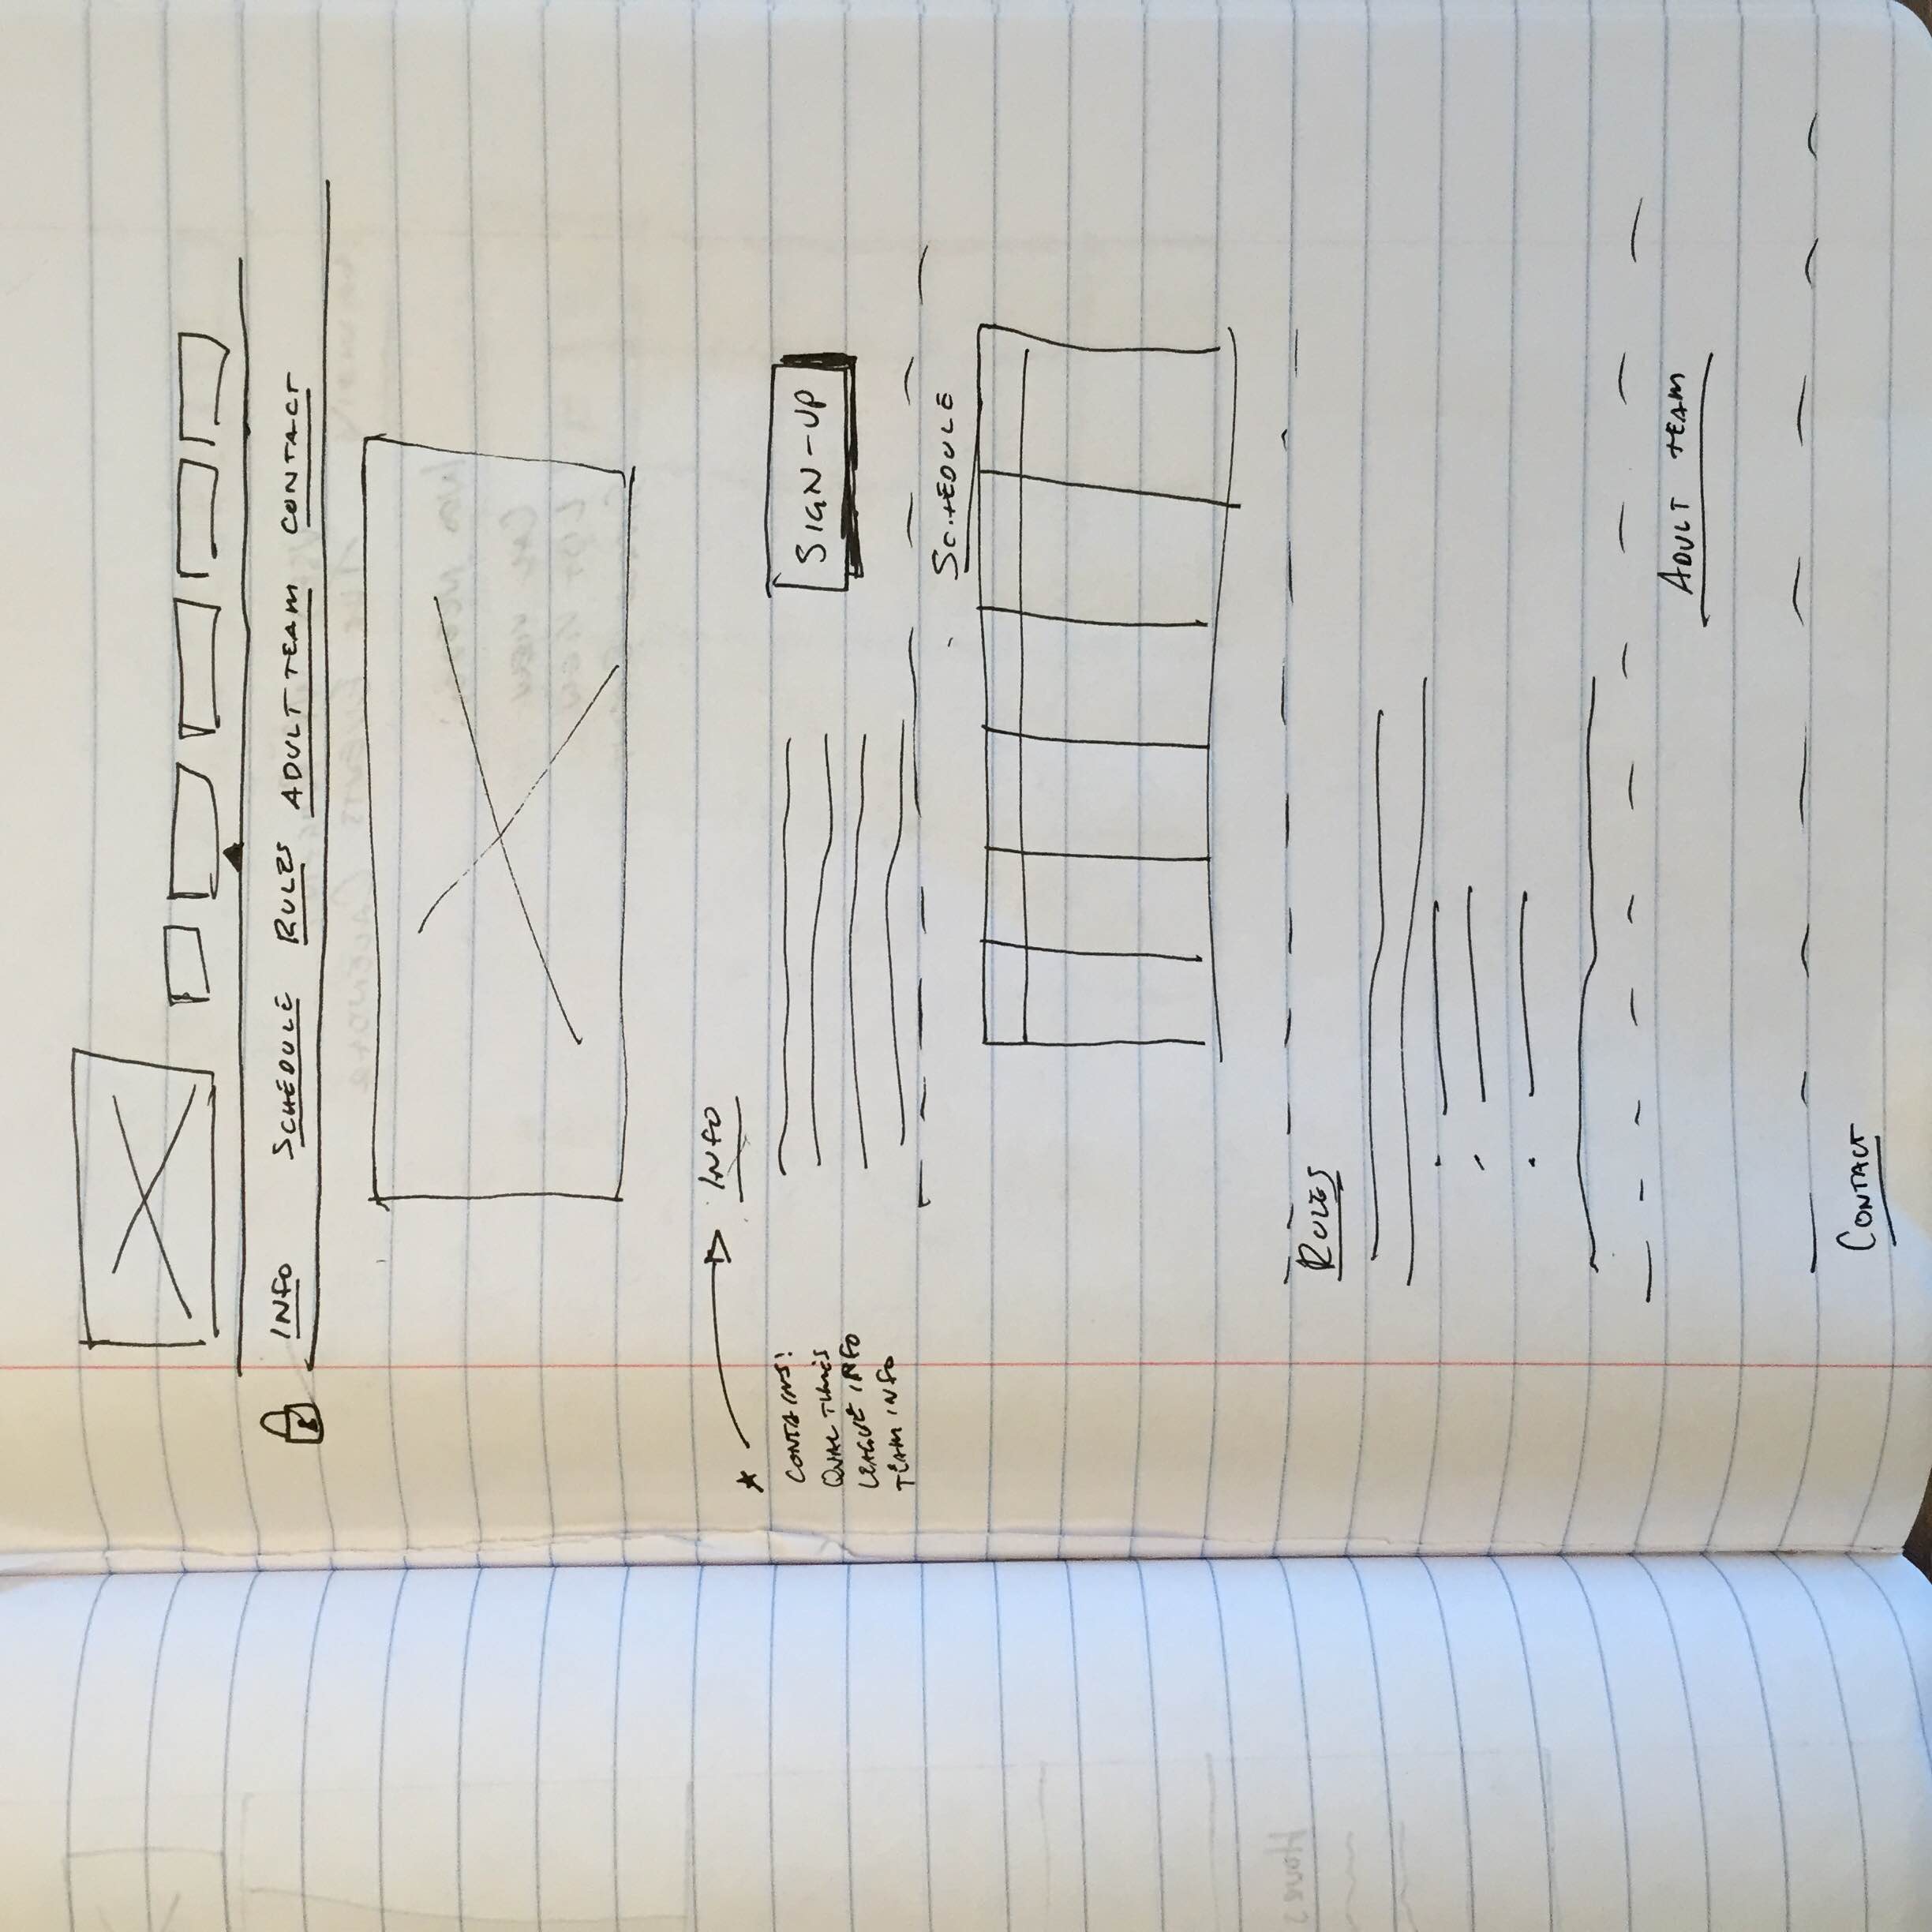 INFO SCHEDULE RULES ADULT TEAM CONTACT
INFO
CONTAINS!
QUAL TIMES
LEAGUE INFO
TEAM INFO
SIGN-UP
SCHEDULE
RULES
ADULT TEAM
CONTACT